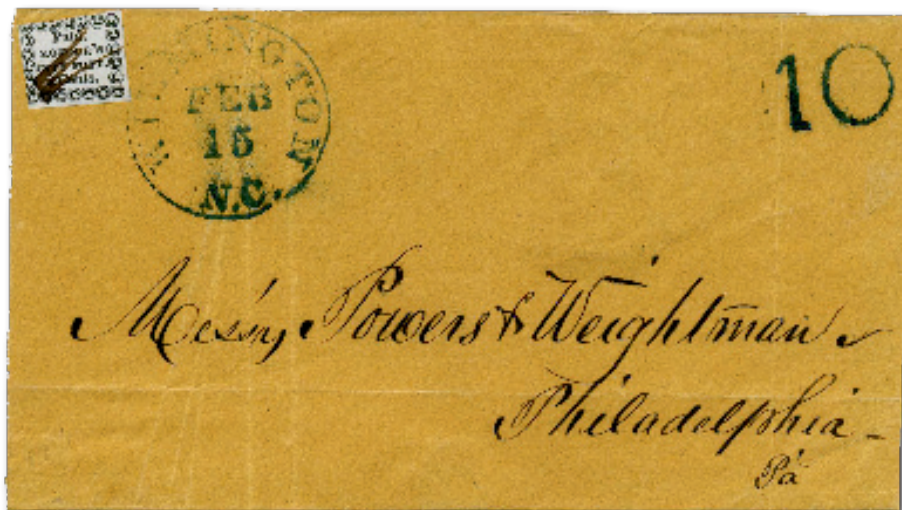 Paid
WILMINGTON
FEB
15
N.C.
10
Messrs, Powers & Weightman
Philadelphia -
Pa